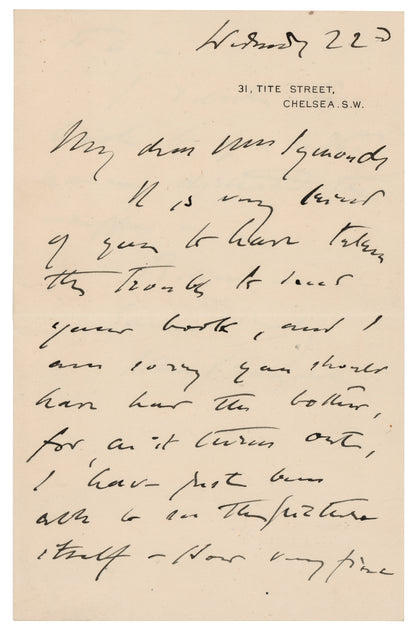 Wednesday 22nd
31, TITE STREET,
CHELSEA. S.W.
My dear Mrs Symonds
It is very kind
of you to have taken
the trouble to send
your book, and I
am sorry you should
have had the bother,
for, as it turns out,
I have just been
able to see the picture
itself – How very fine